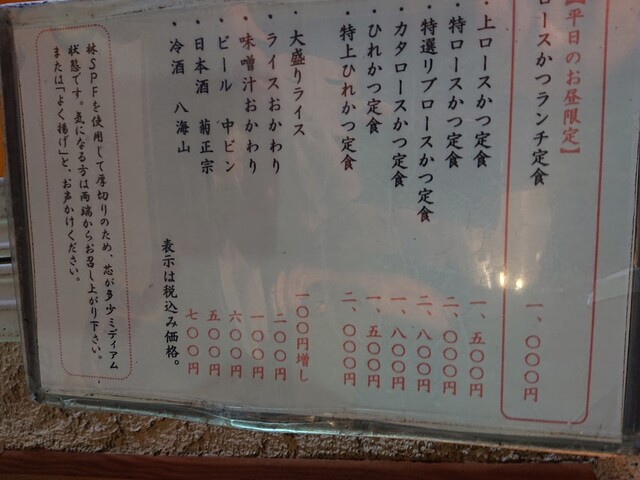 【平日のお昼限定】
ロースかつランチ定食　一、〇〇〇円
・上ロースかつ定食　一、五〇〇円
・特ロースかつ定食　二、〇〇〇円
・特選リブロースかつ定食　二、八〇〇円
・カタロースかつ定食　一、八〇〇円
・ひれかつ定食　一、五〇〇円
・特上ひれかつ定食　二、〇〇〇円
・大盛りライス　一〇〇円増し
・ライスおかわり　二〇〇円
・味噌汁おかわり　一〇〇円
・ビール　中ビン　六〇〇円
・日本酒　菊正宗　五〇〇円
・冷酒　八海山　七〇〇円
表示は税込み価格。
林SPFを使用して厚切りのため、芯が多少ミディアム
状態です。気になる方は両端からお召し上がり下さい。
または「よく揚げ」と、お声かけください。